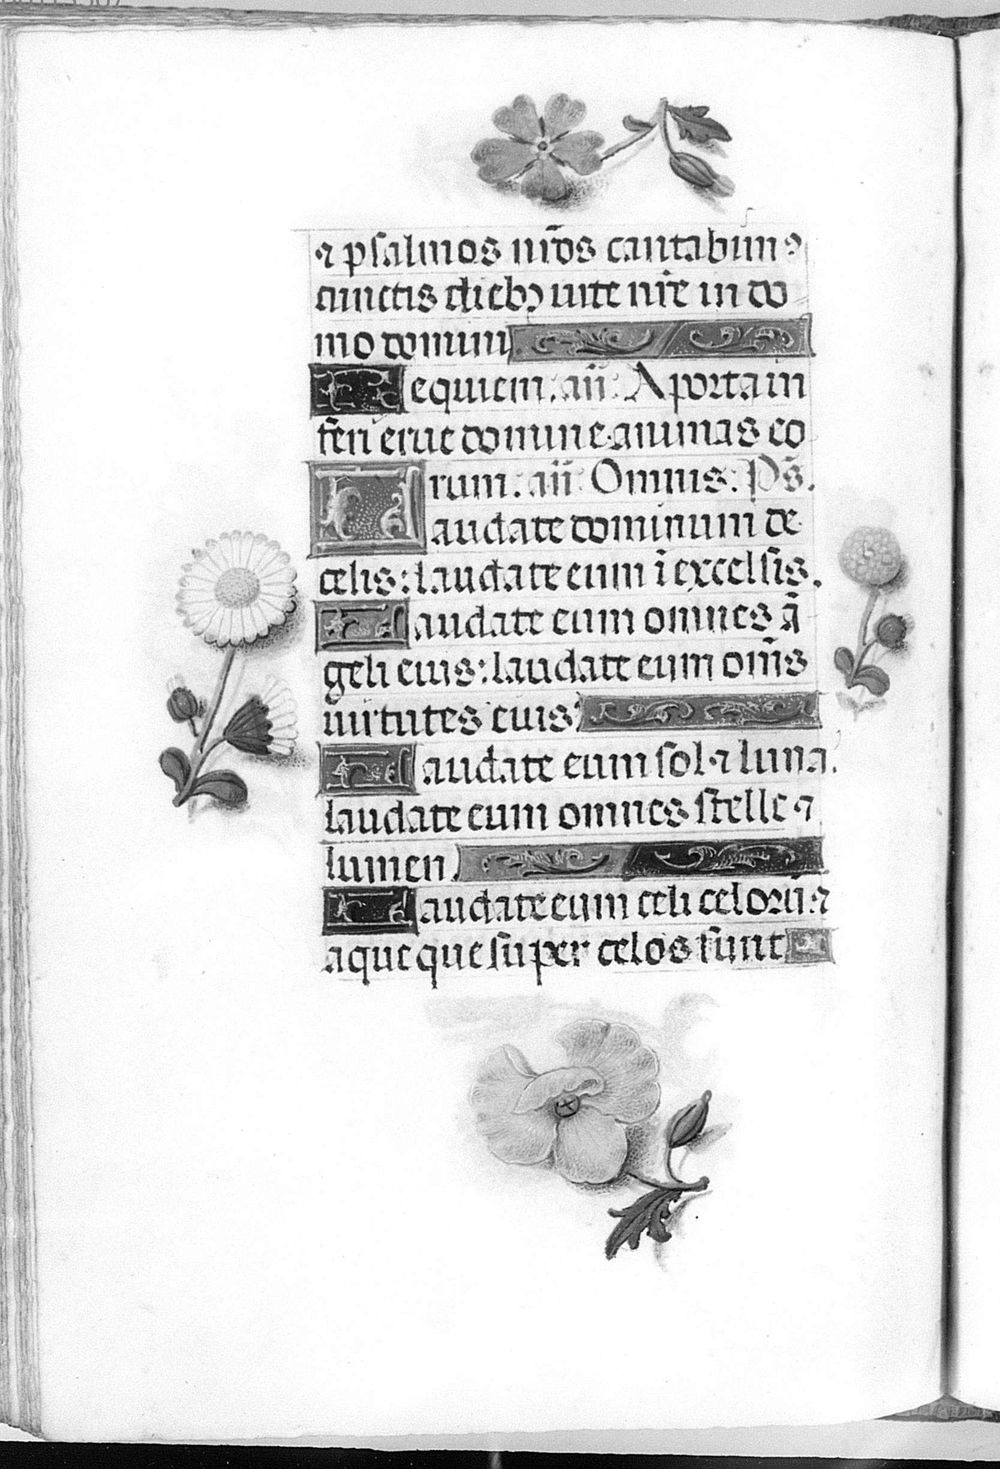 ⁊ psalmos nr̄os cantabimꝰ
cunctis diebꝫ uite nr̄e in do
mo domini
Requiem. an̄. A porta in
feri erue domine animas eo
rum. an̄. Omnis. Ps̄.
Laudate dominum de
celis: laudate eum ī excelsis.
Laudate eum omnes ā
geli eius: laudate eum om̄s
uirtutes eius.
Laudate eum sol ⁊ luna.
laudate eum omnes stelle ⁊
lumen.
Laudate eum celi celorū ⁊
aque que super celos sunt